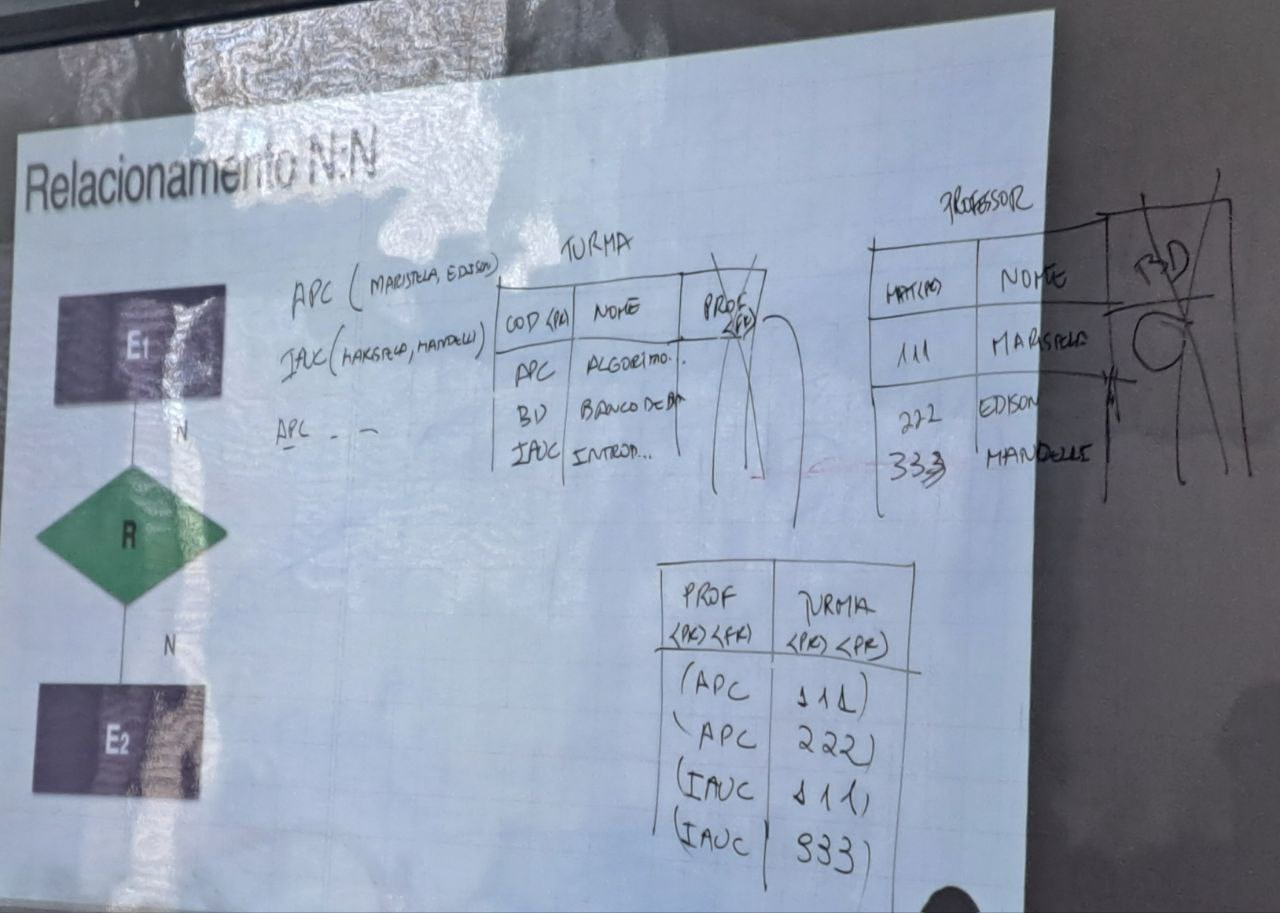 Relacionamento N:N
E1
N
R
N
E2
APC (MARISTELA, EDISON)
IAUC (MARISTELA, MANDELLI)
APC - -
TURMA
COD <PK) NOME PROF <FK)
APC ALGORITMO..
BD BANCO DE DA
IAUC INTROD...
PROFESSOR
MAT(PK) NOME BD
111 MARISTELA
222 EDISON
333 MANDELLI
PROF TURMA
<PK) <FK) <PK) <FK)
(APC 111)
(APC 222)
(IAUC 111)
(IAUC 333)